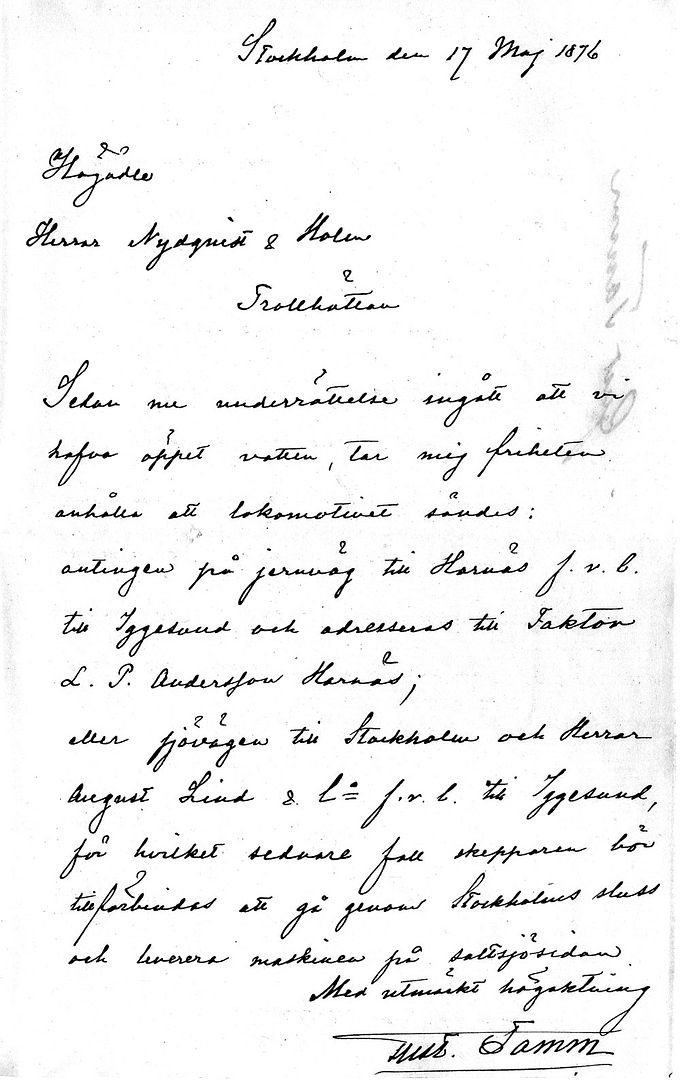 Stockholm den 17 Maj 1876
Högädle
Herrar Nydqvist & Holm
Trollhättan
Sedan nu underrättelse ingått att vi
hafva öppet vatten, tar mig friheten
anhålla att lokomotivet sändes:
antingen på jernväg till Harnäs f. v. b.
till Iggesund och adresseras till Faktor
L. P. Andersson Harnäs;
eller sjövägen till Stockholm och Herrar
August Lind & Co f. v. b. till Iggesund,
för hvilket sednare fall skepparen bör
tillförbindas att gå genom Stockholms sluss
och leverera maskinen på saltsjösidan
Med utmärkt högaktning
Gust. Tamm